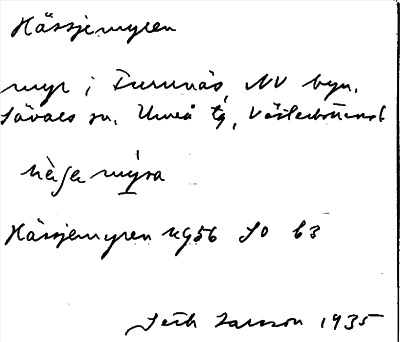 Hässjemyren
myr i Furunäs, NV byn,
Sävars sn, Umeå tg, Västerbottens l
hàsemy̅ra
Hässjemyren ug56 SO b3
Seth Larsson 1935